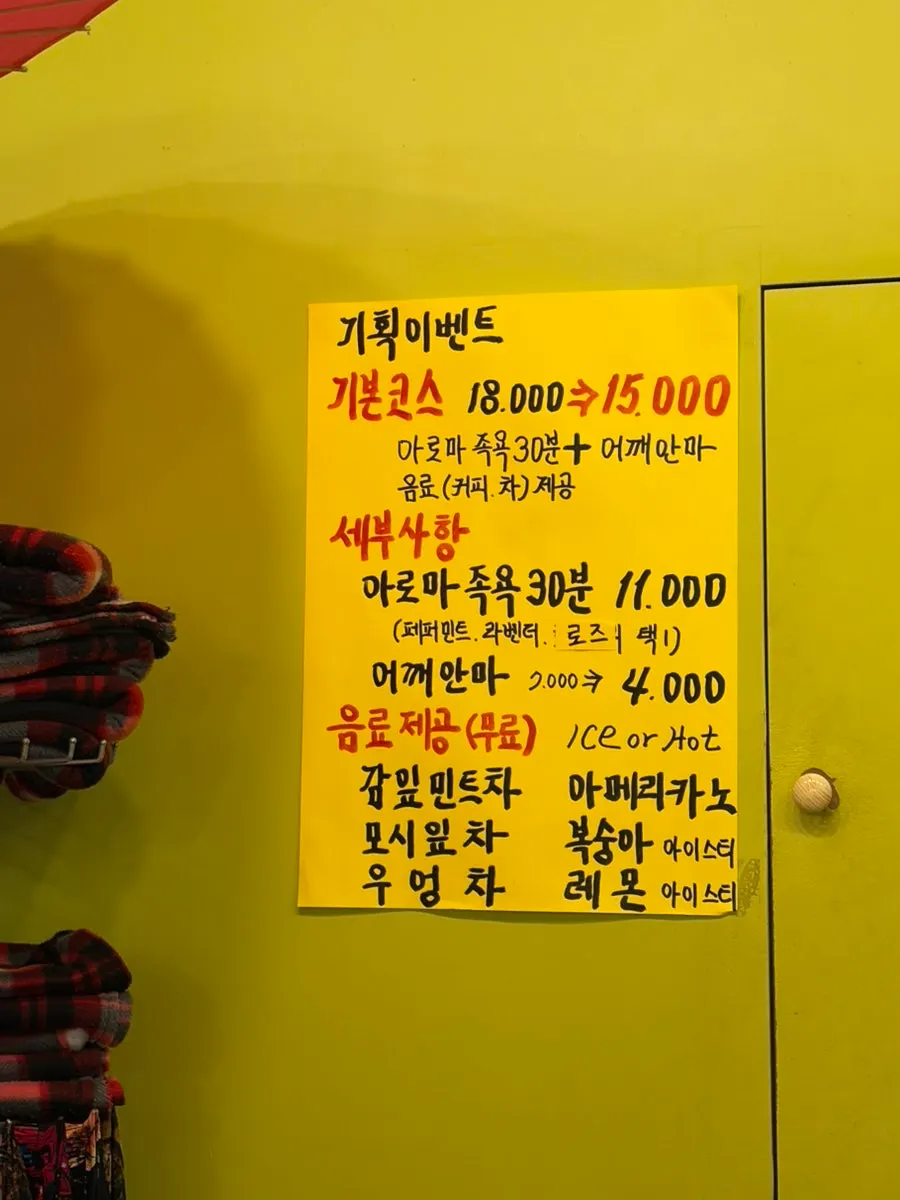 기획이벤트
기본코스 18.000⇒15.000
아로마 족욕 30분+ 어깨안마
음료 (커피.차) 제공
세부사항
아로마 족욕 30분 11.000
(페퍼민트. 라벤더. 로즈 택1)
어깨안마 7.000⇒ 4.000
음료 제공 (무료) ICe or Hot
감잎민트차 아메리카노
모시잎차 복숭아 아이스티
우엉차 레몬 아이스티